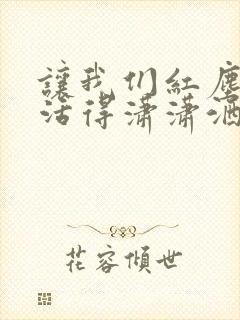 讓我们紅塵
活得瀟瀟洒
花容傾世